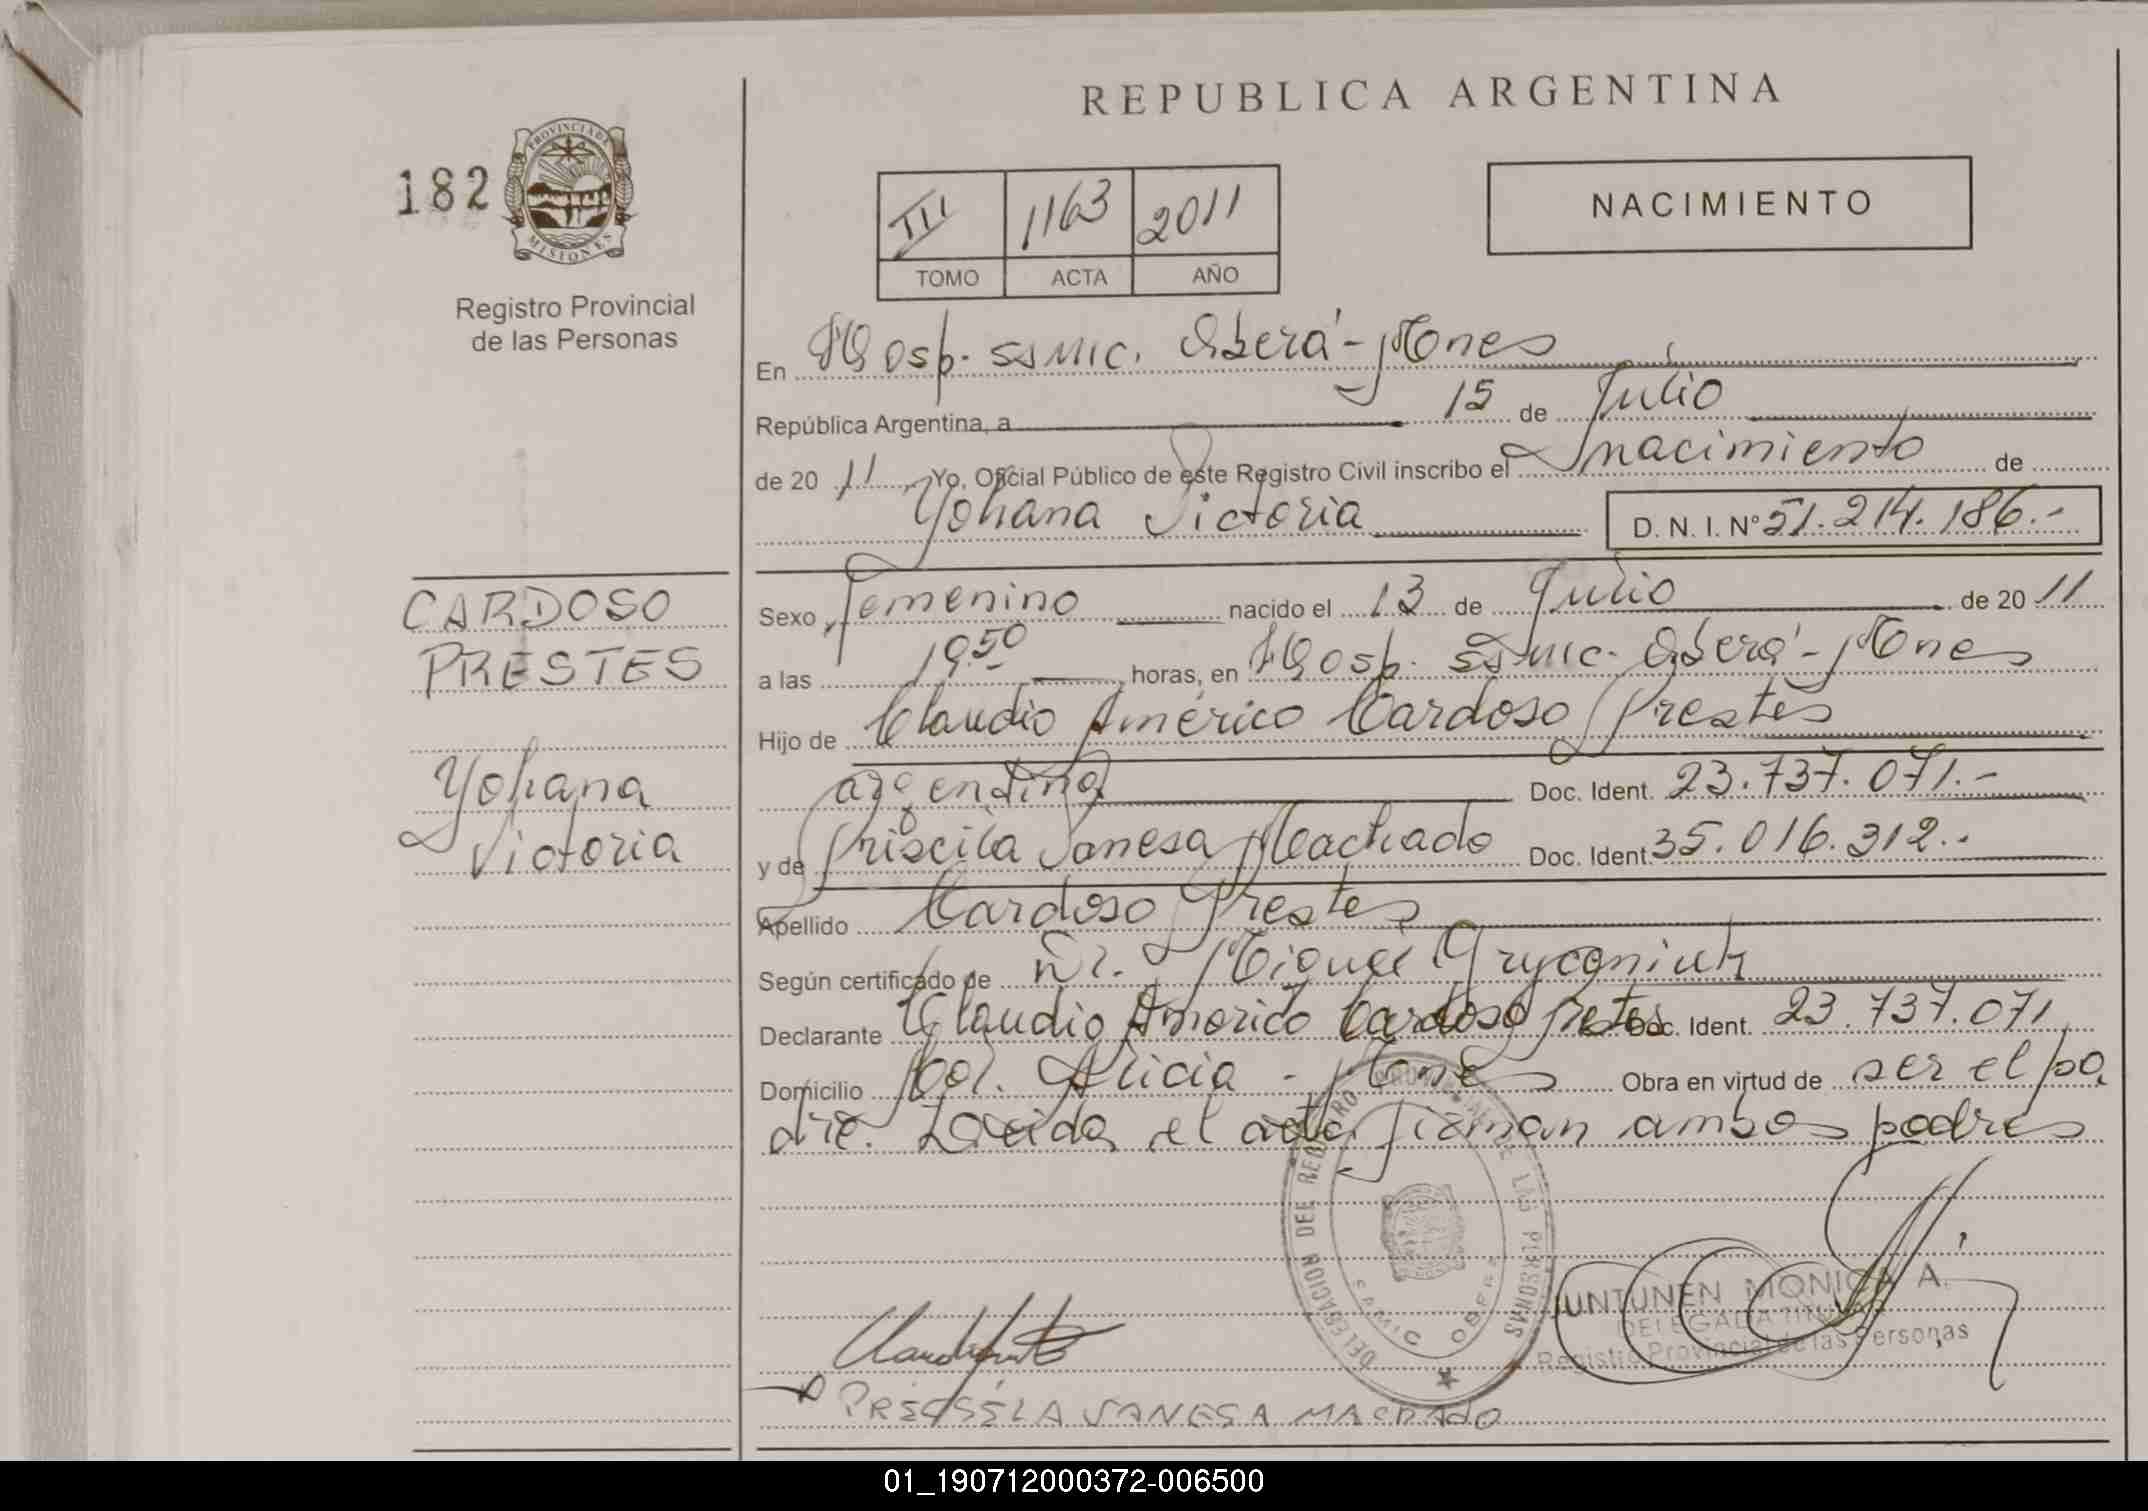 REPUBLICA ARGENTINA
182
PROVINCIA DE
MISIONES
Registro Provincial
de las Personas
III 1163 2011
TOMO ACTA AÑO
NACIMIENTO
En Hosp. SAMIC. Oberá - Mnes
República Argentina, a 15 de Julio
de 2011, Yo, Oficial Público de este Registro Civil inscribo el nacimiento de
Yohana Victoria D. N. I. Nº 51.214.186.-
CARDOSO
PRESTES
Yohana
Victoria
Sexo femenino nacido el 13 de Julio de 2011
a las 19.50 horas, en Hosp. SAMIC. Oberá - Mnes
Hijo de Claudio Américo Cardoso Prestes
argentina Doc. Ident. 23.737.071.-
y de Priscila Vanesa Machado Doc. Ident. 35.016.312.-
Apellido Cardoso Prestes
Según certificado de Dr. Miguel
Declarante Claudio Americo Cardoso Prestes Doc. Ident. 23.737.071
Domicilio Col. Alicia - Mnes Obra en virtud de ser el pa
dre. Leida el acta firman ambos padres
DELEGACION DEL REGISTRO PROVINCIAL DE LAS PERSONAS
SAMIC OBERA
JUNTUNEN MONICA A.
DELEGADA TITULAR
Registro Provincial de las Personas
VANESA MACHADO
01_190712000372-006500